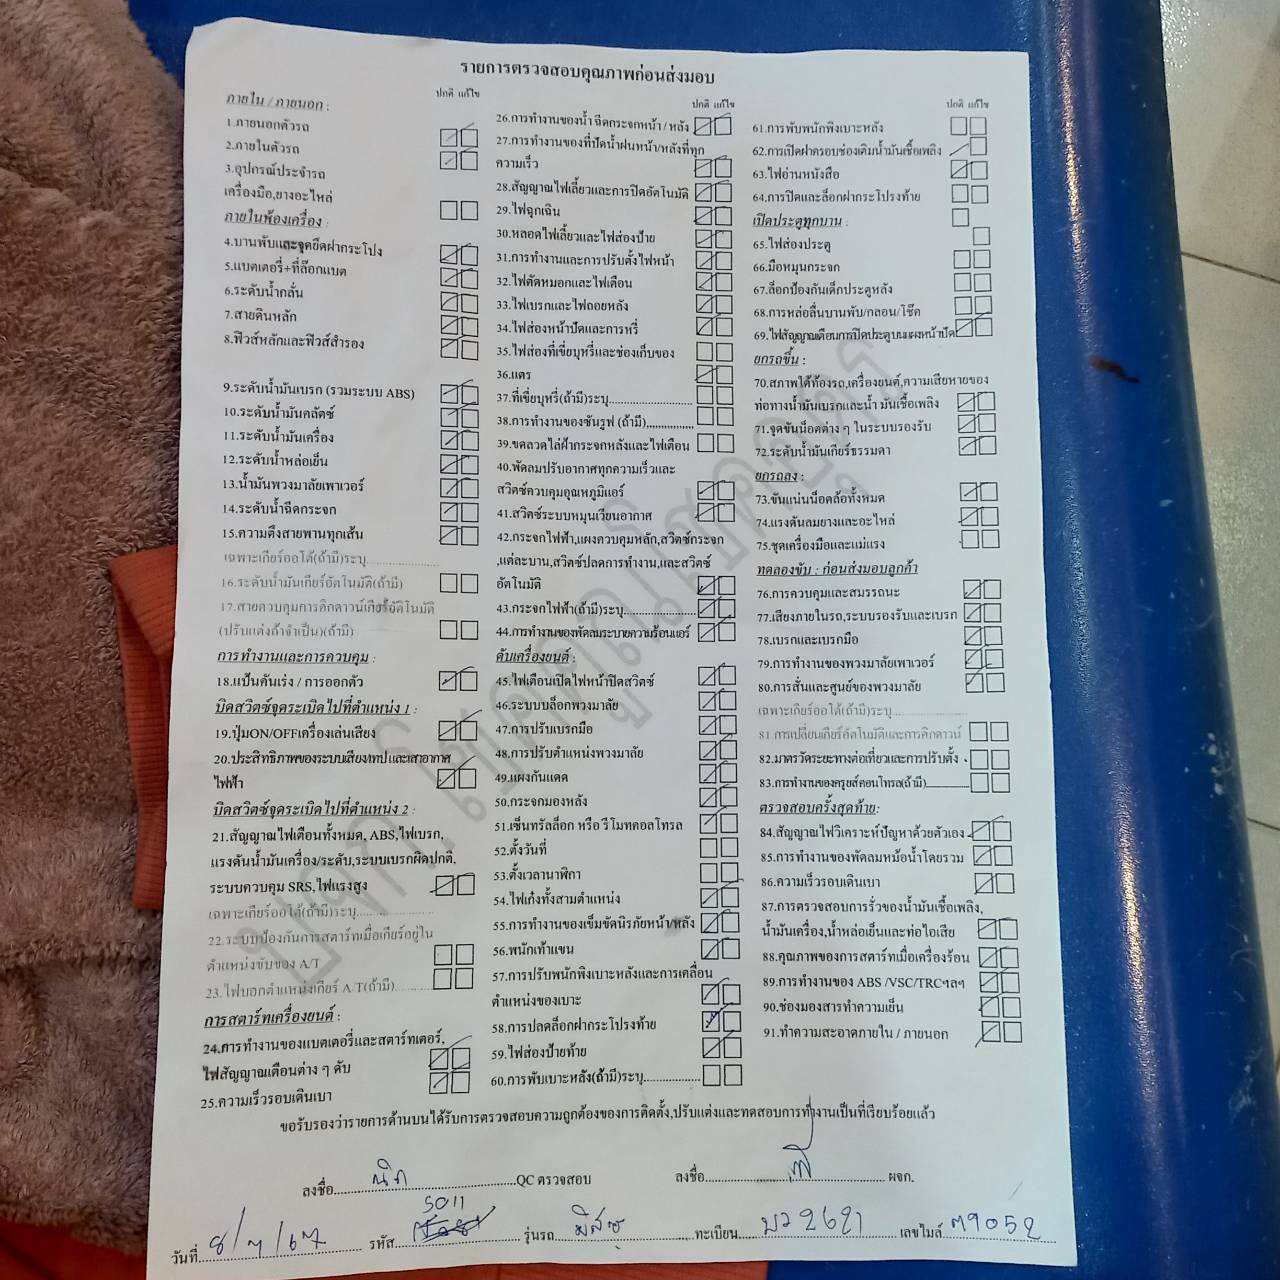 รายการตรวจสอบคุณภาพก่อนส่งมอบ
ปกติ แก้ไข
ภายใน / ภายนอก :
1.ภายนอกตัวรถ
2.ภายในตัวรถ
3.อุปกรณ์ประจำรถ
เครื่องมือ,ยางอะไหล่
ภายในห้องเครื่อง :
4.บานพับและจุดยึดฝากระโปง
5.แบตเตอรี่+ที่ล๊อกแบต
6.ระดับน้ำกลั่น
7.สายดินหลัก
8.ฟิวส์หลักและฟิวส์สำรอง
9.ระดับน้ำมันเบรก (รวมระบบ ABS)
10.ระดับน้ำมันคลัตช์
11.ระดับน้ำมันเครื่อง
12.ระดับน้ำหล่อเย็น
13.น้ำมันพวงมาลัยเพาเวอร์
14.ระดับน้ำฉีดกระจก
15.ความตึงสายพานทุกเส้น
เฉพาะเกียร์ออโต้(ถ้ามี)ระบุ
16.ระดับน้ำมันเกียร์อัตโนมัติ(ถ้ามี)
17.สายควบคุมการคิกดาวน์เกียร์อัตโนมัติ
(ปรับแต่งถ้าจำเป็น)(ถ้ามี)
การทำงานและการควบคุม :
18.แป้นคันเร่ง / การออกตัว
บิดสวิตซ์จุดระเบิดไปที่ตำแหน่ง 1 :
19.ปุ่มON/OFFเครื่องเล่นเสียง
20.ประสิทธิภาพของระบบเสียง/เทป และเสาอากาศ
ไฟฟ้า
บิดสวิตซ์จุดระเบิดไปที่ตำแหน่ง 2 :
21.สัญญาณไฟเตือนทั้งหมด, ABS,ไฟเบรก,
แรงดันน้ำมันเครื่อง/ระดับ,ระบบเบรกผิดปกติ,
ระบบควบคุม SRS,ไฟแรงสูง
เฉพาะเกียร์ออโต้(ถ้ามี)ระบุ
22.ระบบป้องกันการสตาร์ทเมื่อเกียร์อยู่ใน
ตำแหน่งขับของ A/T
23.ไฟบอกตำแหน่งเกียร์ A/T(ถ้ามี)
การสตาร์ทเครื่องยนต์ :
24.การทำงานของแบตเตอรี่และสตาร์ทเตอร์,
ไฟสัญญาณเตือนต่าง ๆ ดับ
25.ความเร็วรอบเดินเบา
ปกติ แก้ไข
26.การทำงานของน้ำ ฉีดกระจกหน้า / หลัง
27.การทำงานของที่ปัดน้ำฝนหน้า/หลังที่ทุก
ความเร็ว
28.สัญญาณไฟเลี้ยวและการปิดอัตโนมัติ
29.ไฟฉุกเฉิน
30.หลอดไฟเลี้ยวและไฟส่องป้าย
31.การทำงานและการปรับตั้งไฟหน้า
32.ไฟตัดหมอกและไฟเตือน
33.ไฟเบรกและไฟถอยหลัง
34.ไฟส่องหน้าปัดและการหรี่
35.ไฟส่องที่เขี่ยบุหรี่และช่องเก็บของ
36.แตร
37.ที่เขี่ยบุหรี่(ถ้ามี)ระบุ
38.การทำงานของซันรูฟ (ถ้ามี)
39.ขดลวดไล่ฝ้ากระจกหลังและไฟเตือน
40.พัดลมปรับอากาศทุกความเร็วและ
สวิตซ์ควบคุมอุณหภูมิแอร์
41.สวิตซ์ระบบหมุนเวียนอากาศ
42.กระจกไฟฟ้า,แผงควบคุมหลัก,สวิตซ์กระจก
,แต่ละบาน,สวิตซ์ปลดการทำงาน,และสวิตซ์
อัตโนมัติ
43.กระจกไฟฟ้า(ถ้ามี)ระบุ
44.การทำงานของพัดลมระบายความร้อนแอร์
ดับเครื่องยนต์ :
45.ไฟเตือนเปิดไฟหน้าปิดสวิตซ์
46.ระบบบล็อกพวงมาลัย
47.การปรับเบรกมือ
48.การปรับตำแหน่งพวงมาลัย
49.แผงกันแดด
50.กระจกมองหลัง
51.เซ็นทรัลล็อก หรือ รีโมทคอลโทรล
52.ตั้งวันที่
53.ตั้งเวลานาฬิกา
54.ไฟเก๋งทั้งสามตำแหน่ง
55.การทำงานของเข็มขัดนิรภัยหน้า/หลัง
56.พนักเท้าแขน
57.การปรับพนักพิงเบาะหลังและการเคลื่อน
ตำแหน่งของเบาะ
58.การปลดล็อกฝากระโปรงท้าย
59.ไฟส่องป้ายท้าย
60.การพับเบาะหลัง(ถ้ามี)ระบุ
ปกติ แก้ไข
61.การพับพนักพิงเบาะหลัง
62.การเปิดฝาครอบช่องเติมน้ำมันเชื้อเพลิง
63.ไฟอ่านหนังสือ
64.การปิดและล็อกฝากระโปรงท้าย
เปิดประตูทุกบาน :
65.ไฟส่องประตู
66.มือหมุนกระจก
67.ล็อกป้องกันเด็กประตูหลัง
68.การหล่อลื่นบานพับ/กลอน/โช๊ค
69.ไฟสัญญาณเตือนการปิดประตูบนแผงหน้าปัด
ยกรถขึ้น :
70.สภาพใต้ท้องรถ,เครื่องยนต์,ความเสียหายของ
ท่อทางน้ำมันเบรกและน้ำ มันเชื้อเพลิง
71.จุดขันน็อตต่าง ๆ ในระบบรองรับ
72.ระดับน้ำมันเกียร์ธรรมดา
ยกรถลง :
73.ขันแน่นน็อตล้อทั้งหมด
74.แรงดันลมยางและอะไหล่
75.ชุดเครื่องมือและแม่แรง
ทดลองขับ : ก่อนส่งมอบลูกค้า
76.การควบคุมและสมรรถนะ
77.เสียงภายในรถ,ระบบรองรับและเบรก
78.เบรกและเบรกมือ
79.การทำงานของพวงมาลัยเพาเวอร์
80.การสั่นและศูนย์ของพวงมาลัย
เฉพาะเกียร์ออโต้(ถ้ามี)ระบุ
81.การเปลี่ยนเกียร์อัตโนมัติและการคิกดาวน์
82.มาตรวัดระยะทางต่อเที่ยวและการปรับตั้ง
83.การทำงานของครุยส์คอนโทรล(ถ้ามี)
ตรวจสอบครั้งสุดท้าย:
84.สัญญาณไฟวิเคราะห์ปัญหาด้วยตัวเอง
85.การทำงานของพัดลมหม้อน้ำโดยรวม
86.ความเร็วรอบเดินเบา
87.การตรวจสอบการรั่วของน้ำมันเชื้อเพลิง,
น้ำมันเครื่อง,น้ำหล่อเย็นและท่อไอเสีย
88.คุณภาพของการสตาร์ทเมื่อเครื่องร้อน
89.การทำงานของ ABS /VSC/TRCฯลฯ
90.ช่องมองสารทำความเย็น
91.ทำความสะอาดภายใน / ภายนอก
ขอรับรองว่ารายการด้านบนได้รับการตรวจสอบความถูกต้องของการติดตั้ง,ปรับแต่งและทดสอบการทำงานเป็นที่เรียบร้อยแล้ว
ลงชื่อ QC ตรวจสอบ ลงชื่อ ผจก.
วันที่ 8/7/67 รหัส 5011 รุ่นรถ มิสซู ทะเบียน บว 2621 เลขไมล์ 79052